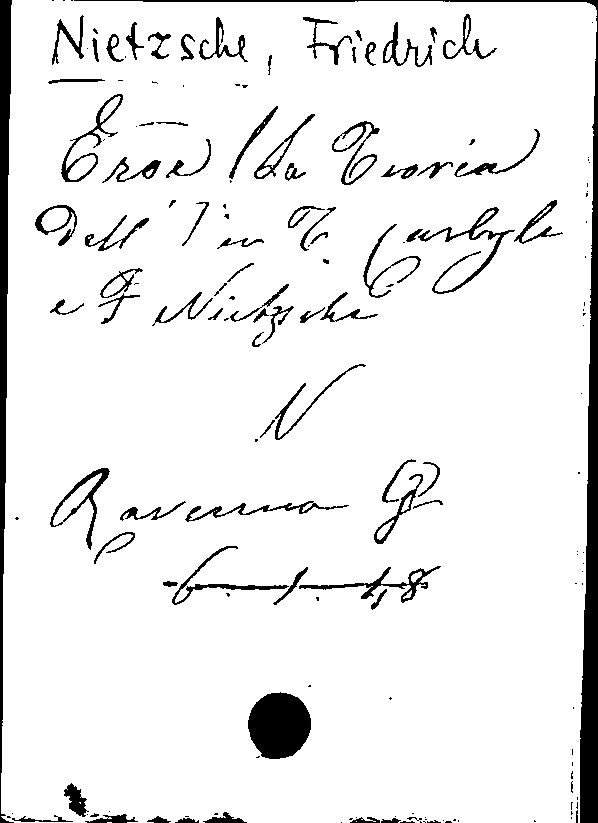 Nietzsche, Friedrich
Eroe (La Teoria
Dell' in T. Carlyle
e F Nietzsche
N
Ravenna
6. 1. 48